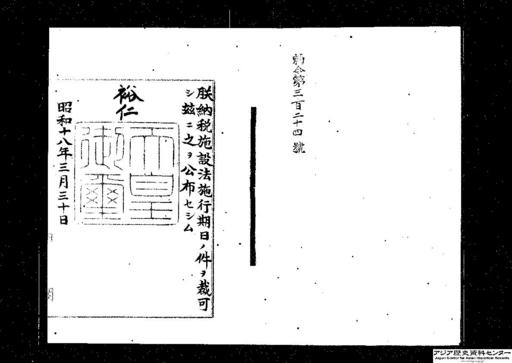 勅令第三百二十四號
朕納税施設法施行期日ノ件ヲ裁可
シ玆ニ之ヲ公布セシム
裕仁
天皇
御璽
昭和十八年三月三十日
アジア歴史資料センター
Japan Center for Asian Historical Records